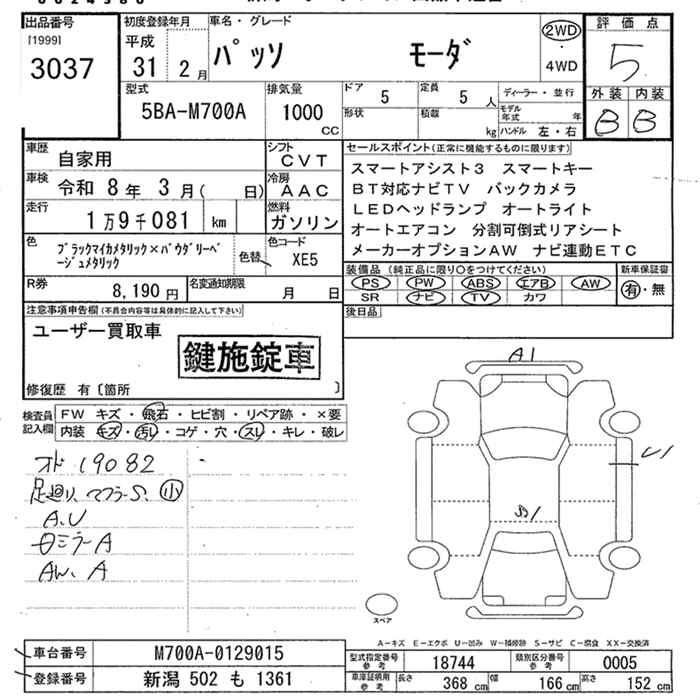 出品番号
[1999]
3037
初度登録年月
平成
31 2月
車名・グレード
パッソ モーダ
2WD
・
4WD
評価点
5
外装 内装
B B
型式
5BA-M700A
排気量
1000
CC
ドア
5
定員
5人
形状
積載
kg
ディーラー・並行
モデル年式 年
ハンドル 左・右
車歴
自家用
車検
令和 8年 3月( 日)
走行
1万9千081 km
シフト
CVT
冷房
AAC
燃料
ガソリン
色
ブラックマイカメタリック×パウダリーベージュメタリック
色替
色コード
XE5
R券
8,190円
名変通知期限
月 日
セールスポイント(正常に機能するものに限ります)
スマートアシスト3 スマートキー
BT対応ナビTV バックカメラ
LEDヘッドランプ オートライト
オートエアコン 分割可倒式リアシート
メーカーオプションAW ナビ連動ETC
装備品(純正品に限り○をつけてください)
PS PW ABS エアB AW
SR ナビ TV カワ
新車保証書
有・無
後日品
注意事項申告欄(不具合内容等は具体的に記入して下さい)
ユーザー買取車
鍵施錠車
修復歴 有〔箇所 〕
検査員記入欄
FW キズ・飛石・ヒビ割・リペア跡・×要
内装 キズ・汚レ・コゲ・穴・スレ・キレ・破レ
オド 19082
足廻り、マフラーS、小
A.U
ミラーA
AW、A
A1
U1
S1
スペア
A-キズ E-エクボ U-凹み W-補修跡 S-サビ C-腐食 XX-交換済
車台番号
M700A-0129015
登録番号
新潟 502 も 1361
型式指定番号
参考
18744
類別区分番号
参考
0005
車庫証明用
参考
長さ 368 cm
幅 166 cm
高さ 152 cm